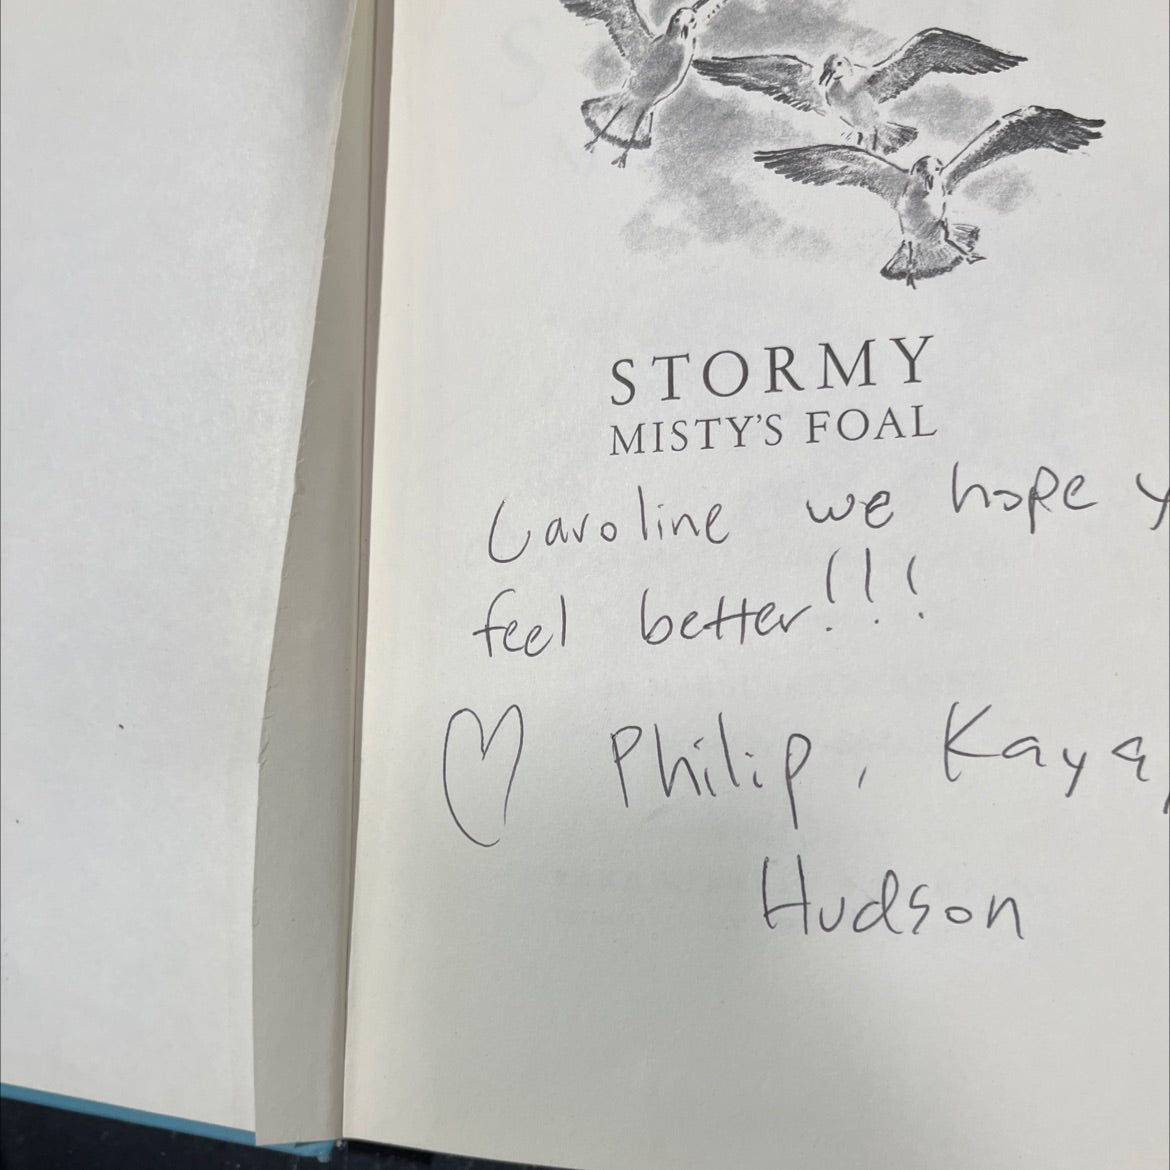 STORMY
MISTY'S FOAL
Caroline we hope y
feel better!!!
♡ Philip, Kaya,
Hudson